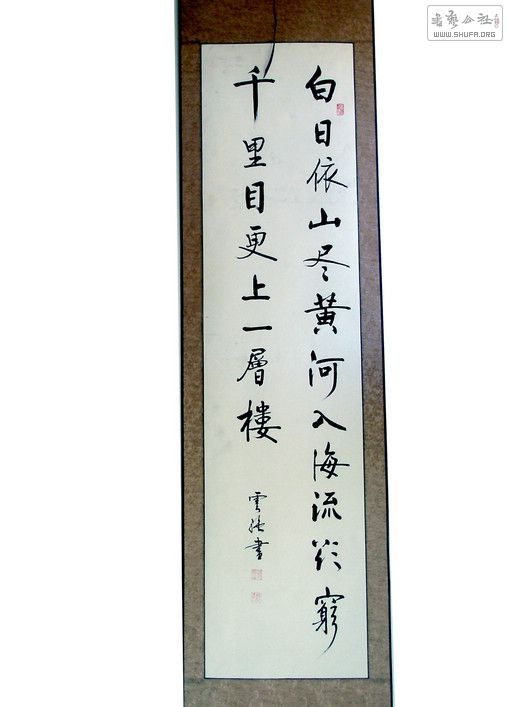 白日依山尽黄河入海流欲窮
千里目更上一層樓
書藝公社
WWW.SHUFA.ORG